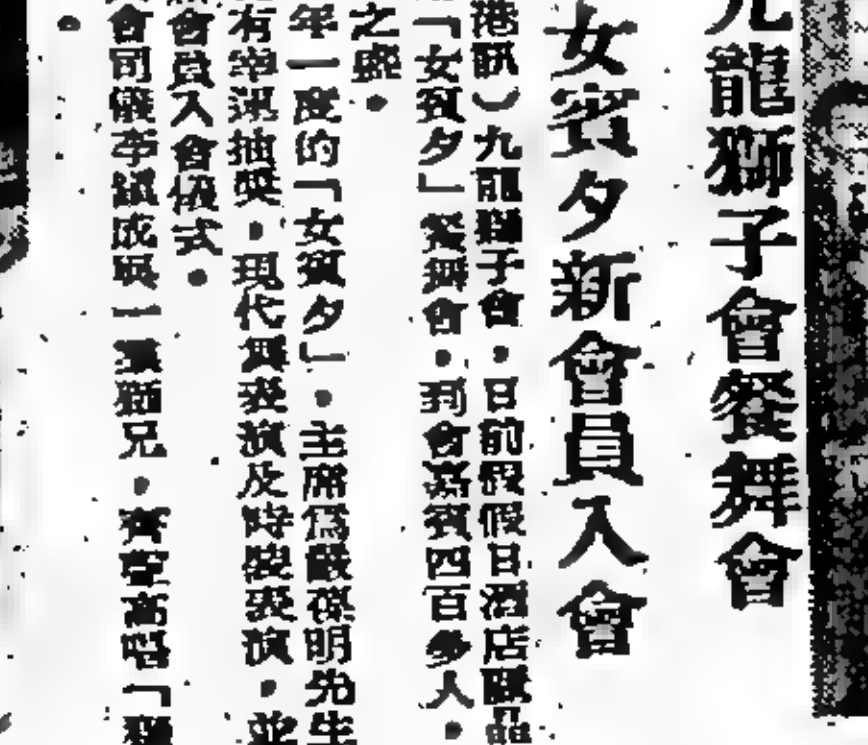 九龍獅子會餐舞會
女賓夕新會員入會
港訊）九龍獅子會．日前假假日酒店
「女賓夕」餐舞會．到會嘉賓四百多人．
之慶．
年一度的「女賓夕」．主席為嚴 明先生
有幸運抽獎．現代舞表演及時裝表演．並
會員入會儀式．
會司儀李 成與一眾獅兄．齊聲高唱「獅